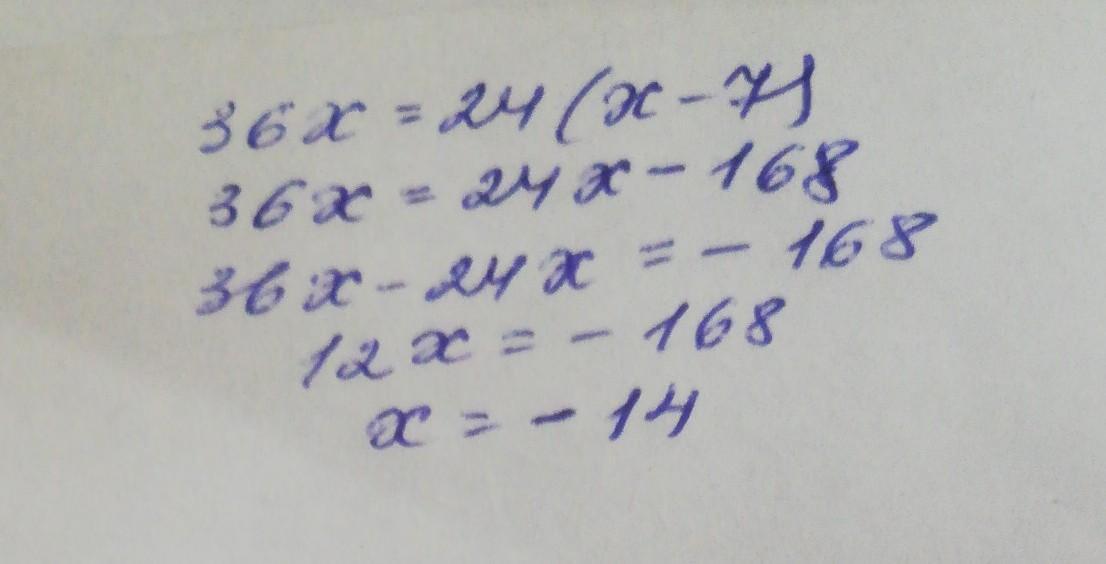 36x = 24(x - 7)
36x = 24x - 168
36x - 24x = - 168
12x = - 168
x = - 14